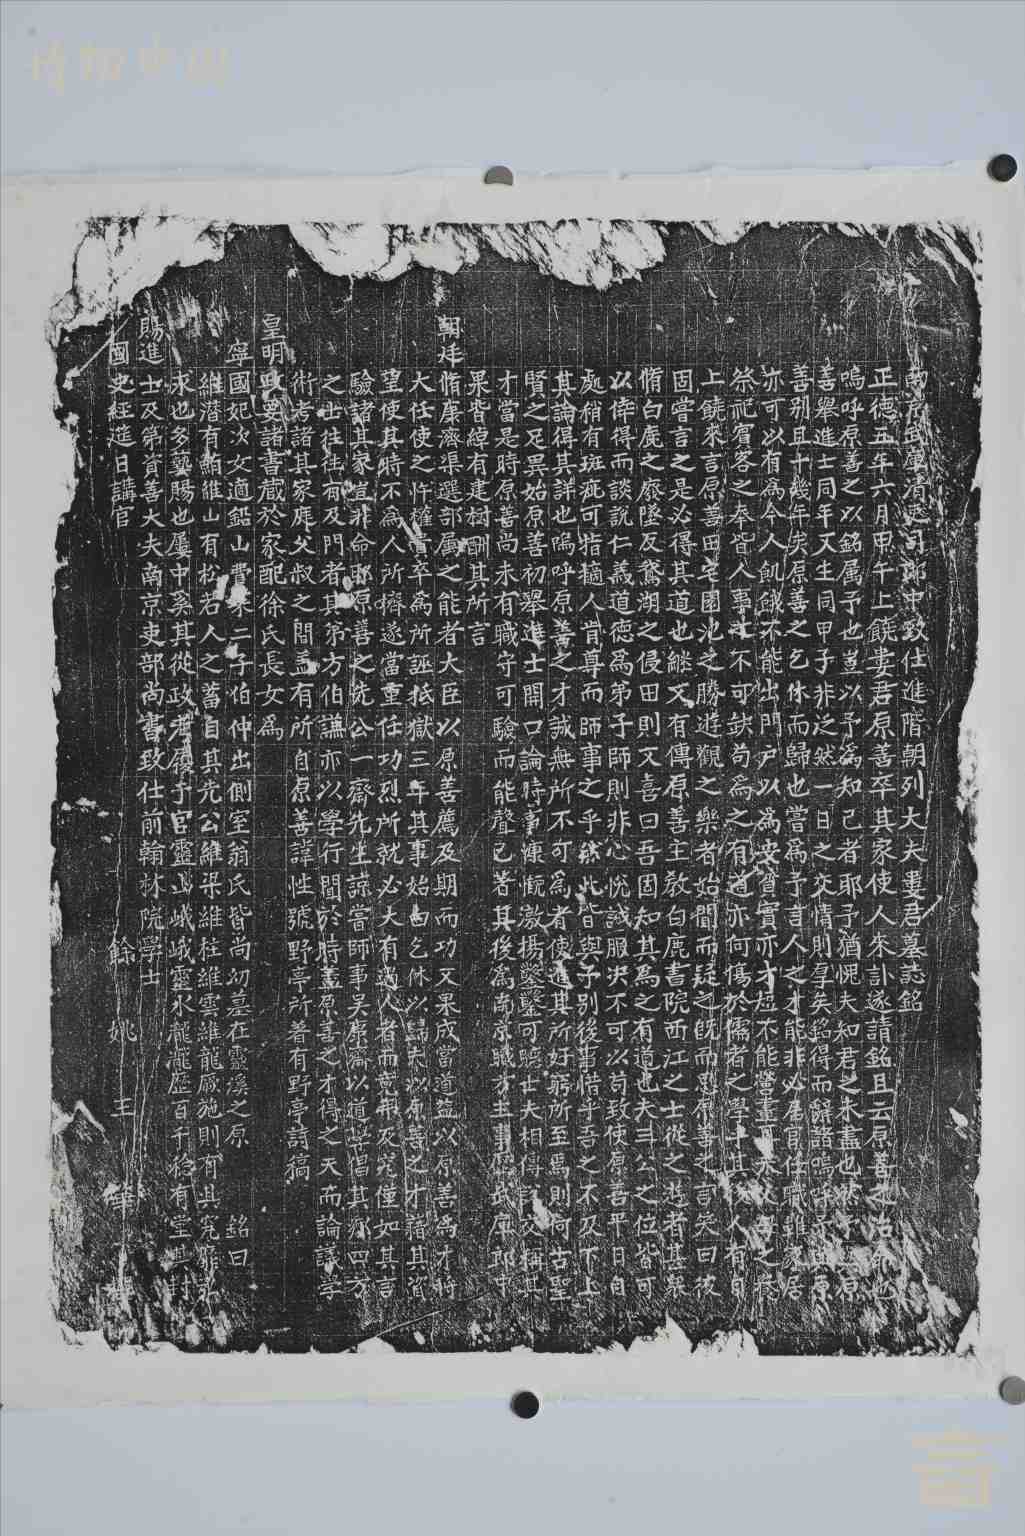 南京武庫清吏司郎中致仕進階朝列大夫婁君墓誌銘
正德五年六月甲午上饒婁君原善卒其家使人朱訃遂請銘且云原善之治命也
嗚呼原善之以銘属予也豈以予為知己者耶予猶恨夫知君之未盡也然予與原
善舉進士同年又生同甲子非泛然一日之交情則厚矣銘得而辭諸嗚呼予與原
善别且十幾年矣原善之乞休而歸也嘗為予言人之才能非必居官任職雖家居
亦可以有為今人飢餓不能出門户以為安貧實亦才短不能營畫
祭祀賓客之奉皆人事不可缺苟為之有道亦何傷於儒者之學乎其後人有自
上饒來言原善田宅園池之勝遊觀之樂者始聞而疑之既而思原善之言笑曰彼
固嘗言之是必得其道也継又有傳原善主教白鹿書院西江之士從之遊者甚衆
脩白鹿之廢墜反鵞湖之侵田則又喜曰吾固知其為之有道也夫三公之位皆可
以倖得而談說仁義道德為弟子師則非心悦誠服决不可以苟致使原善平日自
處稍有斑疵可指擿人肯尊而師事之乎然此皆與予别後事惜乎吾之不及下上
其論得其詳也嗚呼原善之才誠無所不可為者使適其所好窮所至焉則何古聖
賢之足異始原善初舉進士開口論時事慷慨激揚鑿鑿可聽士夫相傳誦交稱其
才當是時原善尚未有職守可驗而能聲已著其後為南京職方主事歷武庫郎中
果皆綽有建樹酬其所言
朝廷脩康濟渠選部屬之能者大臣以原善薦及期而功又果成當道益以原善為才將
大任使之忤權貴卒為所誣抵獄三年其事始白乞休以歸夫以原善之才藉其資
望使其時不為人所擠遂當重任功烈所就必大有過人者而竟弗及究僅如其言
驗諸其家豈非命耶原善之先公一齋先生諒嘗師事吳康齋以道學倡其鄉四方
之士往往有及門者其弟方伯謙亦以學行聞於時蓋原善之才得之天而論議學
術考諸其家庭父叔之間蓋有所自原善諱性號野亭所著有野亭詩稿
皇明政要諸書藏於家配徐氏長女為
寧國妃次女適鉛山費寀二子伯仲出側室翁氏皆尚幼墓在靈溪之原 銘曰
維潛有鮪維山有松若人之蓄自其先公維梁維柱維雲維龍厥施則有其究雖
求也多藝賜也屢中奚其從政考履予官靈山峨峨靈水瀧瀧歷百千稔有堂其封
賜進士及第資善大夫南京吏部尚書致仕前翰林院學士
國史經筵日講官 餘姚王華